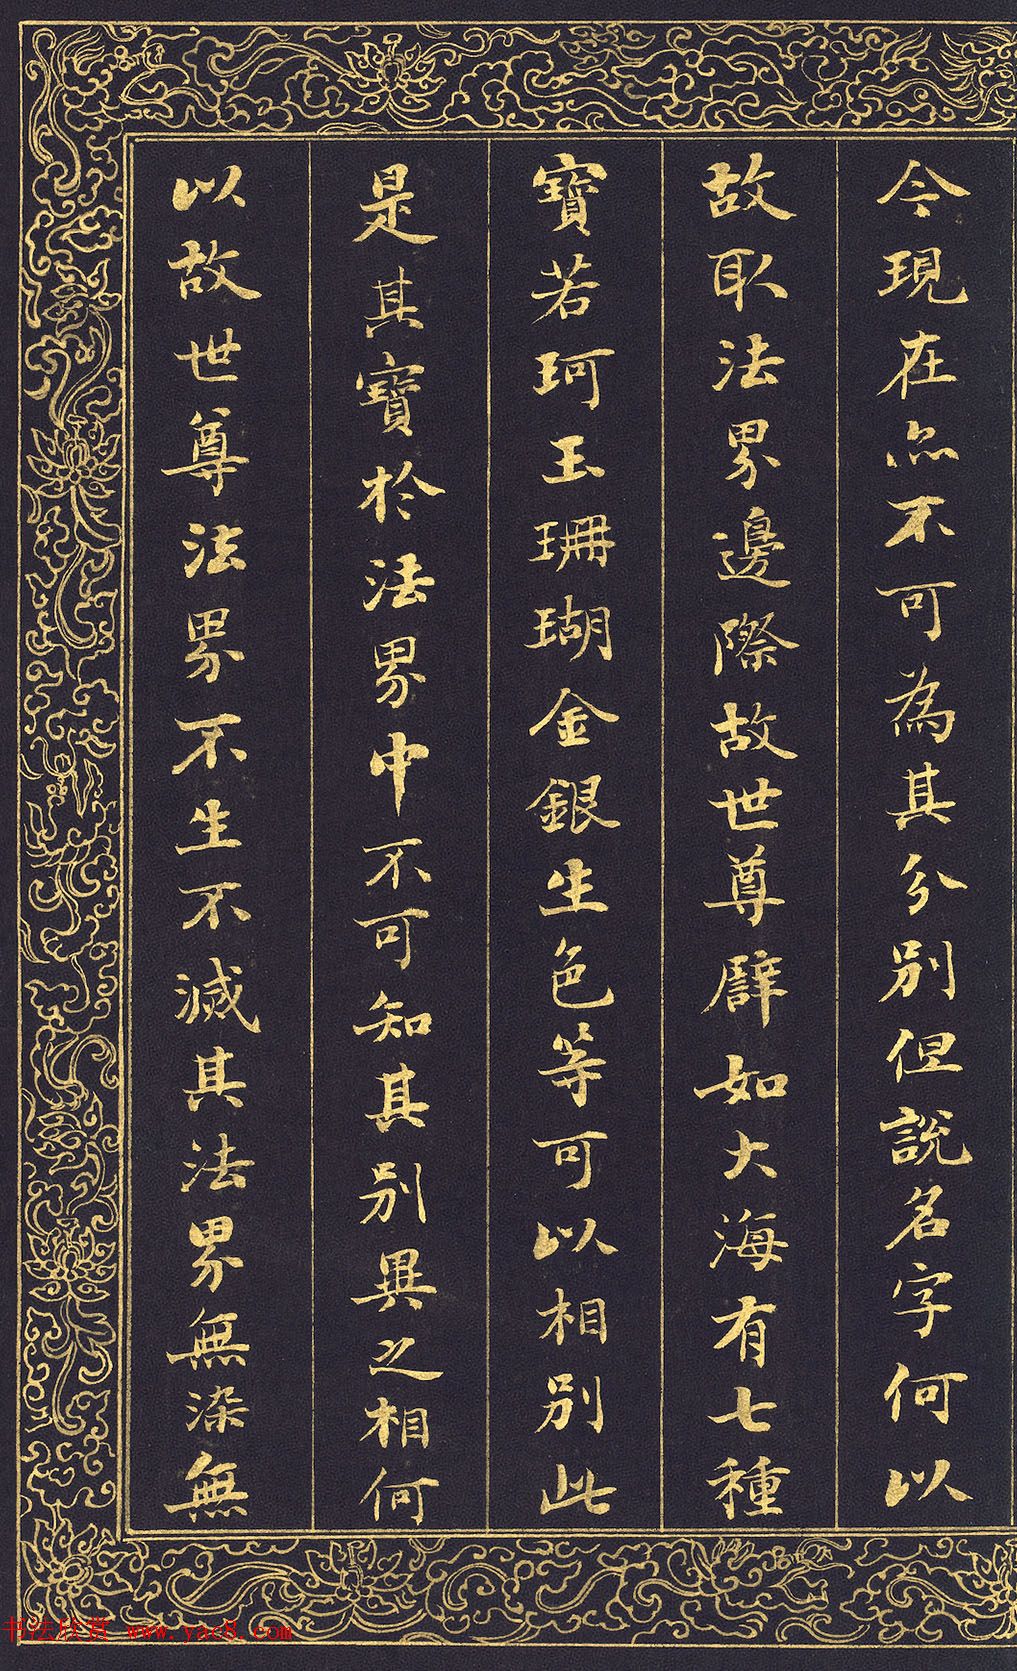 今現在亦不可為其分別但說名字何以
故取法界邊際故世尊譬如大海有七種
寶若珂玉珊瑚金銀生色等可以相別此
是其寶於法界中不可知其別異之相何
以故世尊法界不生不滅其法界無染無
书法欣赏 www.yac8.com